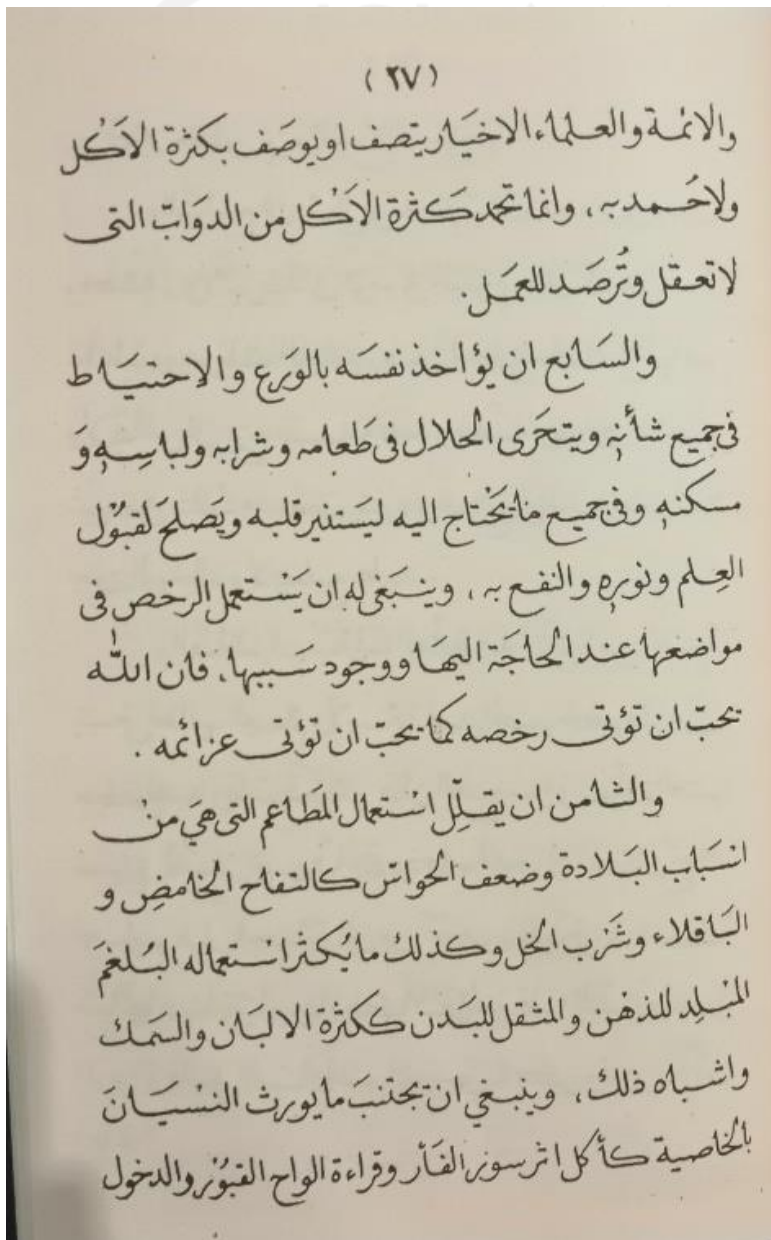 (٢٧)
والائمة والعلماء الاخيَار يتصف او يوصَف بكثرة الاَكْل
ولاحُمد به، وانما تحمد كَثرة الاَكْل من الدوَابّ التى
لا تعقل وتُرصَد للعمَل.
والسَابع ان يؤاخذ نفسَه بالوَرع والاحتيَاط
فى جميع شأنِه ويتحَرى الحلال فى طَعامه وشرابه ولباسِهِ وَ
مسكنهِ وفى جميع مَا يَحْتاج اليه ليَستنير قلبه ويَصلحَ لقبُوْل
العِلم ونورِهِ والنفع به، وينبَغى له ان يَسْتعمل الرخص فى
مواضعها عند الحاجَة اليهَا ووجود سَببها، فان اللّٰه
يحبّ ان تؤتى رخصه كمَا يحبّ ان تؤتى عزائمه.
والثامن ان يقلِّل اسْتعمال المَطَاعم التى هيَ منْ
اسْبَاب البَلادة وضعف الحواسّ كالتفاح الحَامضِ و
البَاقلاء وشَرْب الخل وكذلك مايُكثر اسْتعماله البُلغمَ
المُبْلِد للذهْن والمثقل للبَدن ككثرة الالبَان والسَمك
واشباه ذلكْ، وينبغي ان يجتنبَ مايورث النسْيَانَ
بالخاصية كأكل اثر سورِ الفَأر وقراءة الواح القبُوْر والدخول